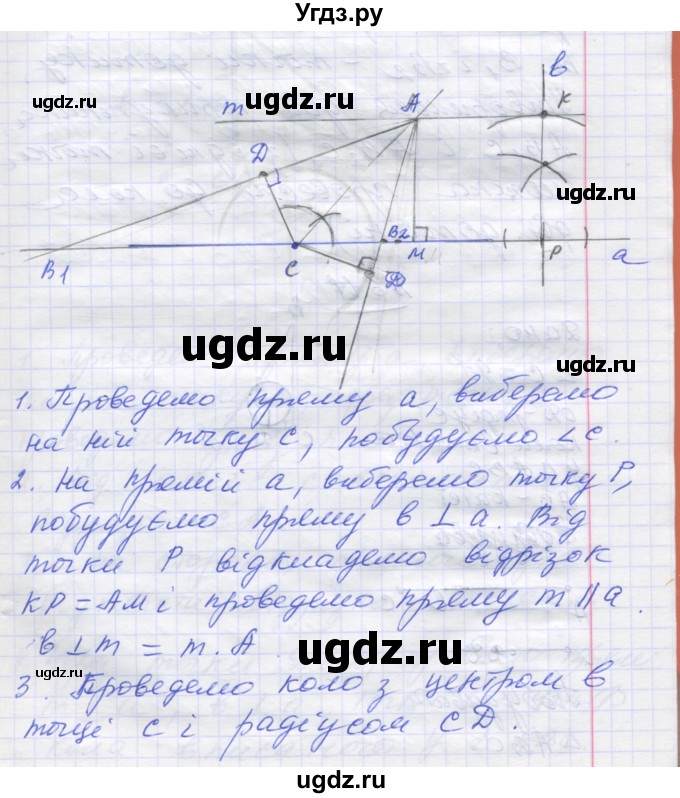 Угдз.ру
ugdz.ru
ugdz.ru
ugdz.ru
в
m
A
K
D
B1
C
B2
M
P
a
D
ugdz.ru
1. Проведемо пряму а, виберемо
на ній точку С, побудуємо ∠С.
2. На прямій а, виберемо точку Р,
побудуємо пряму в ⊥ а. Від
ugdz.ru
точки Р відкладемо відрізок
КР = АМ і проведемо пряму m || а.
в ⊥ m = т. А.
ugdz.ru
ugdz.ru
ugdz.ru
3. Проведемо коло з центром в
точці С і радіусом СD.
ugdz.ru